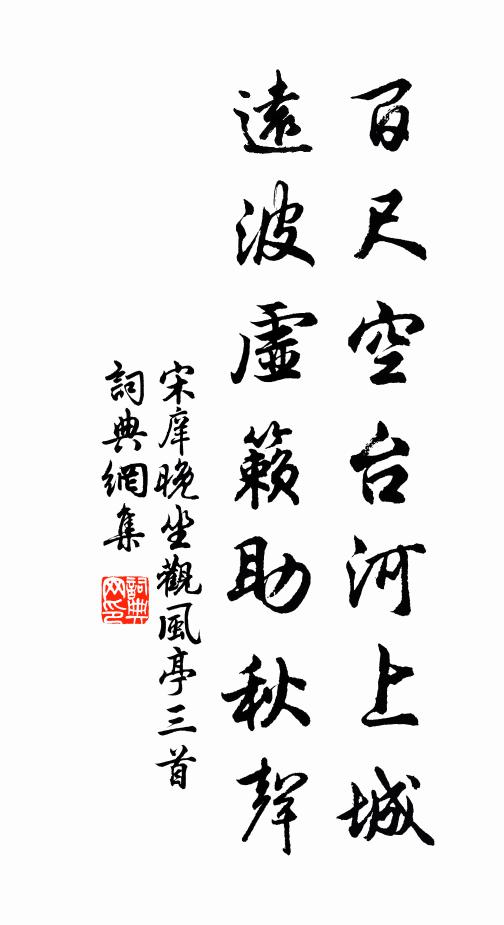 百尺空台河上城
遠波虛籟助秋聲
宋庠晚坐觀風亭三首
詞典網集
詞典網印